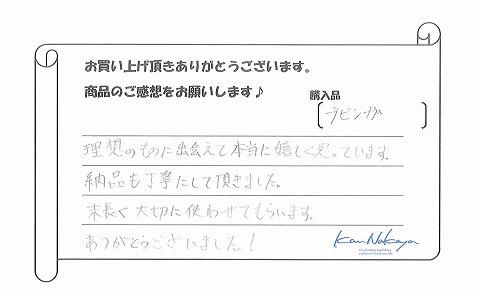 お買い上げ頂きありがとうございます。
商品のご感想をお願いします♪
購入品
ブビンガ
理想のものに出会えて本当に嬉しく思っています。
納品も丁寧にして頂きました。
末長く大切に使わせてもらいます。
ありがとうございました!